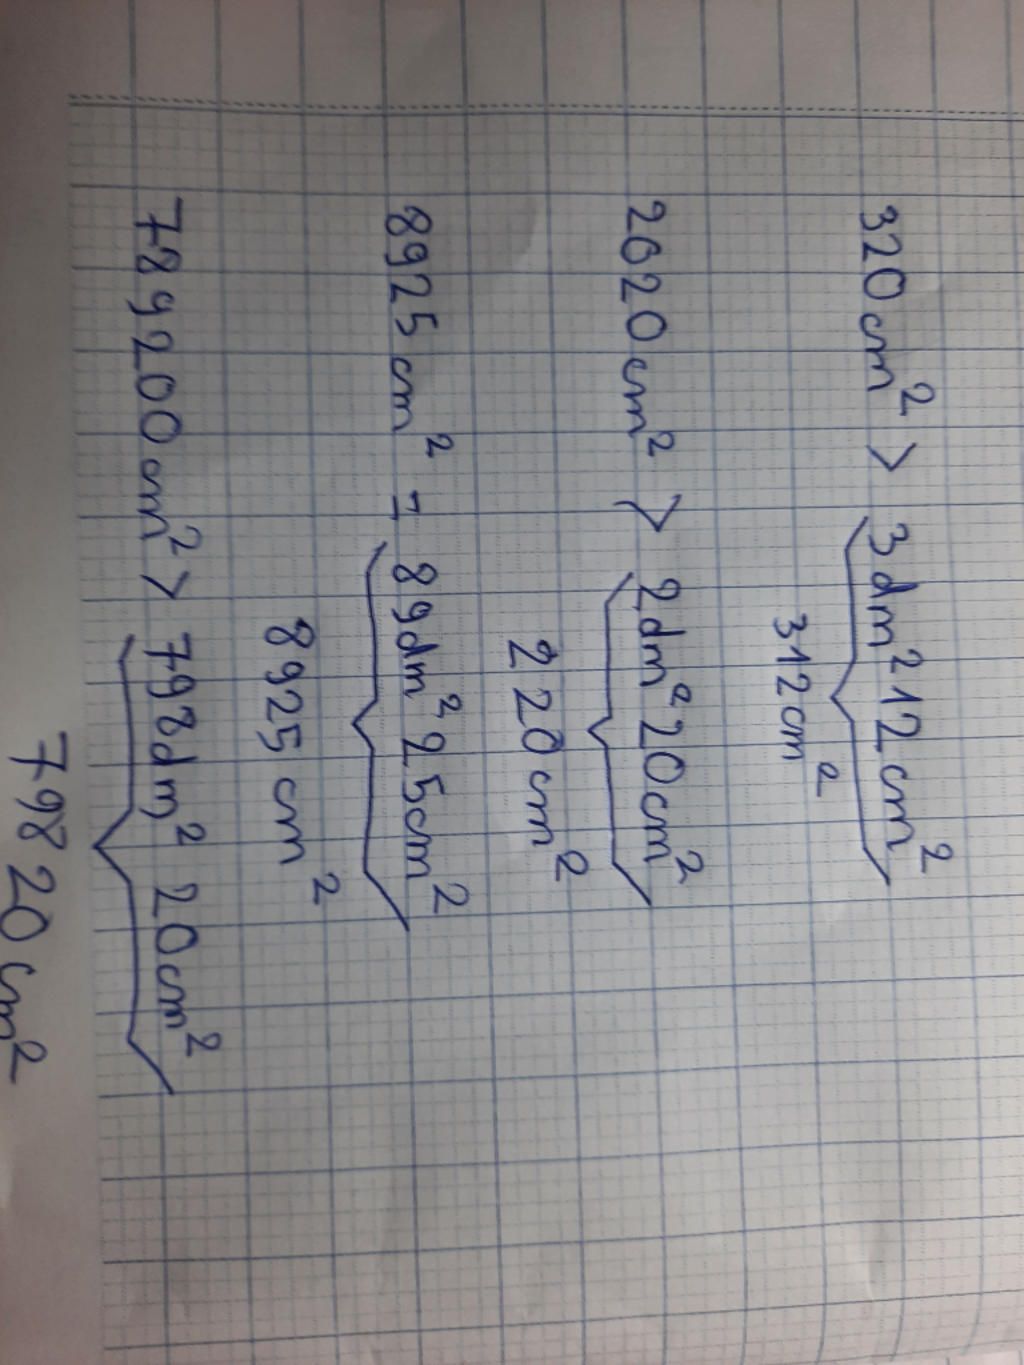 320cm² > 3dm²12cm²
312cm²
2020cm² > 2dm²20cm²
220cm²
8925cm² = 89dm²25cm²
8925cm²
789200cm² > 798dm² 20cm²
79820cm²